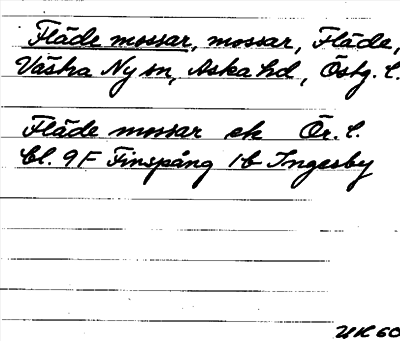 Fläde mossar, mossar, Fläde,
Västra Ny sn, Aska hd, Östg. l.
Fläde mossar ek Ör. l.
bl. 9F Finspång 1b Ingesby
UK 60